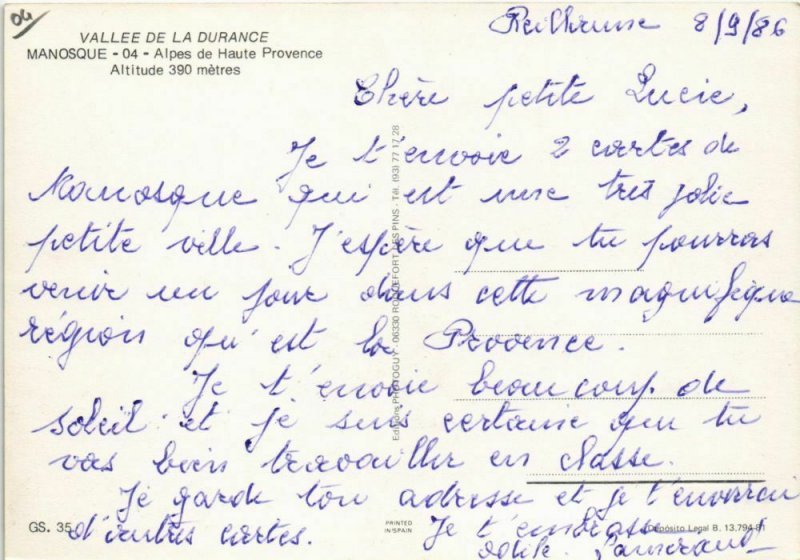 04
VALLEE DE LA DURANCE
MANOSQUE - 04 - Alpes de Haute Provence
Altitude 390 mètres
8/9/86
Chère petite Lucie,
Je t'envoie 2 cartes de
Manosque qui est une très jolie
petite ville. J'espère que tu pourras
venir un jour dans cette magnifique
région qu'est la Provence.
Je t'envoie beaucoup de
soleil et je suis certaine que tu
vas bien travailler en classe.
Je garde ton adresse et je t'enverrai
d'autres cartes. Je t'embrasse
GS. 35
PRINTED
IN SPAIN
Depósito Legal B. 13.794-81
Editions PHOTOGUY - 06330 ROQUEFORT LES PINS - Tél. (93) 77 17 28